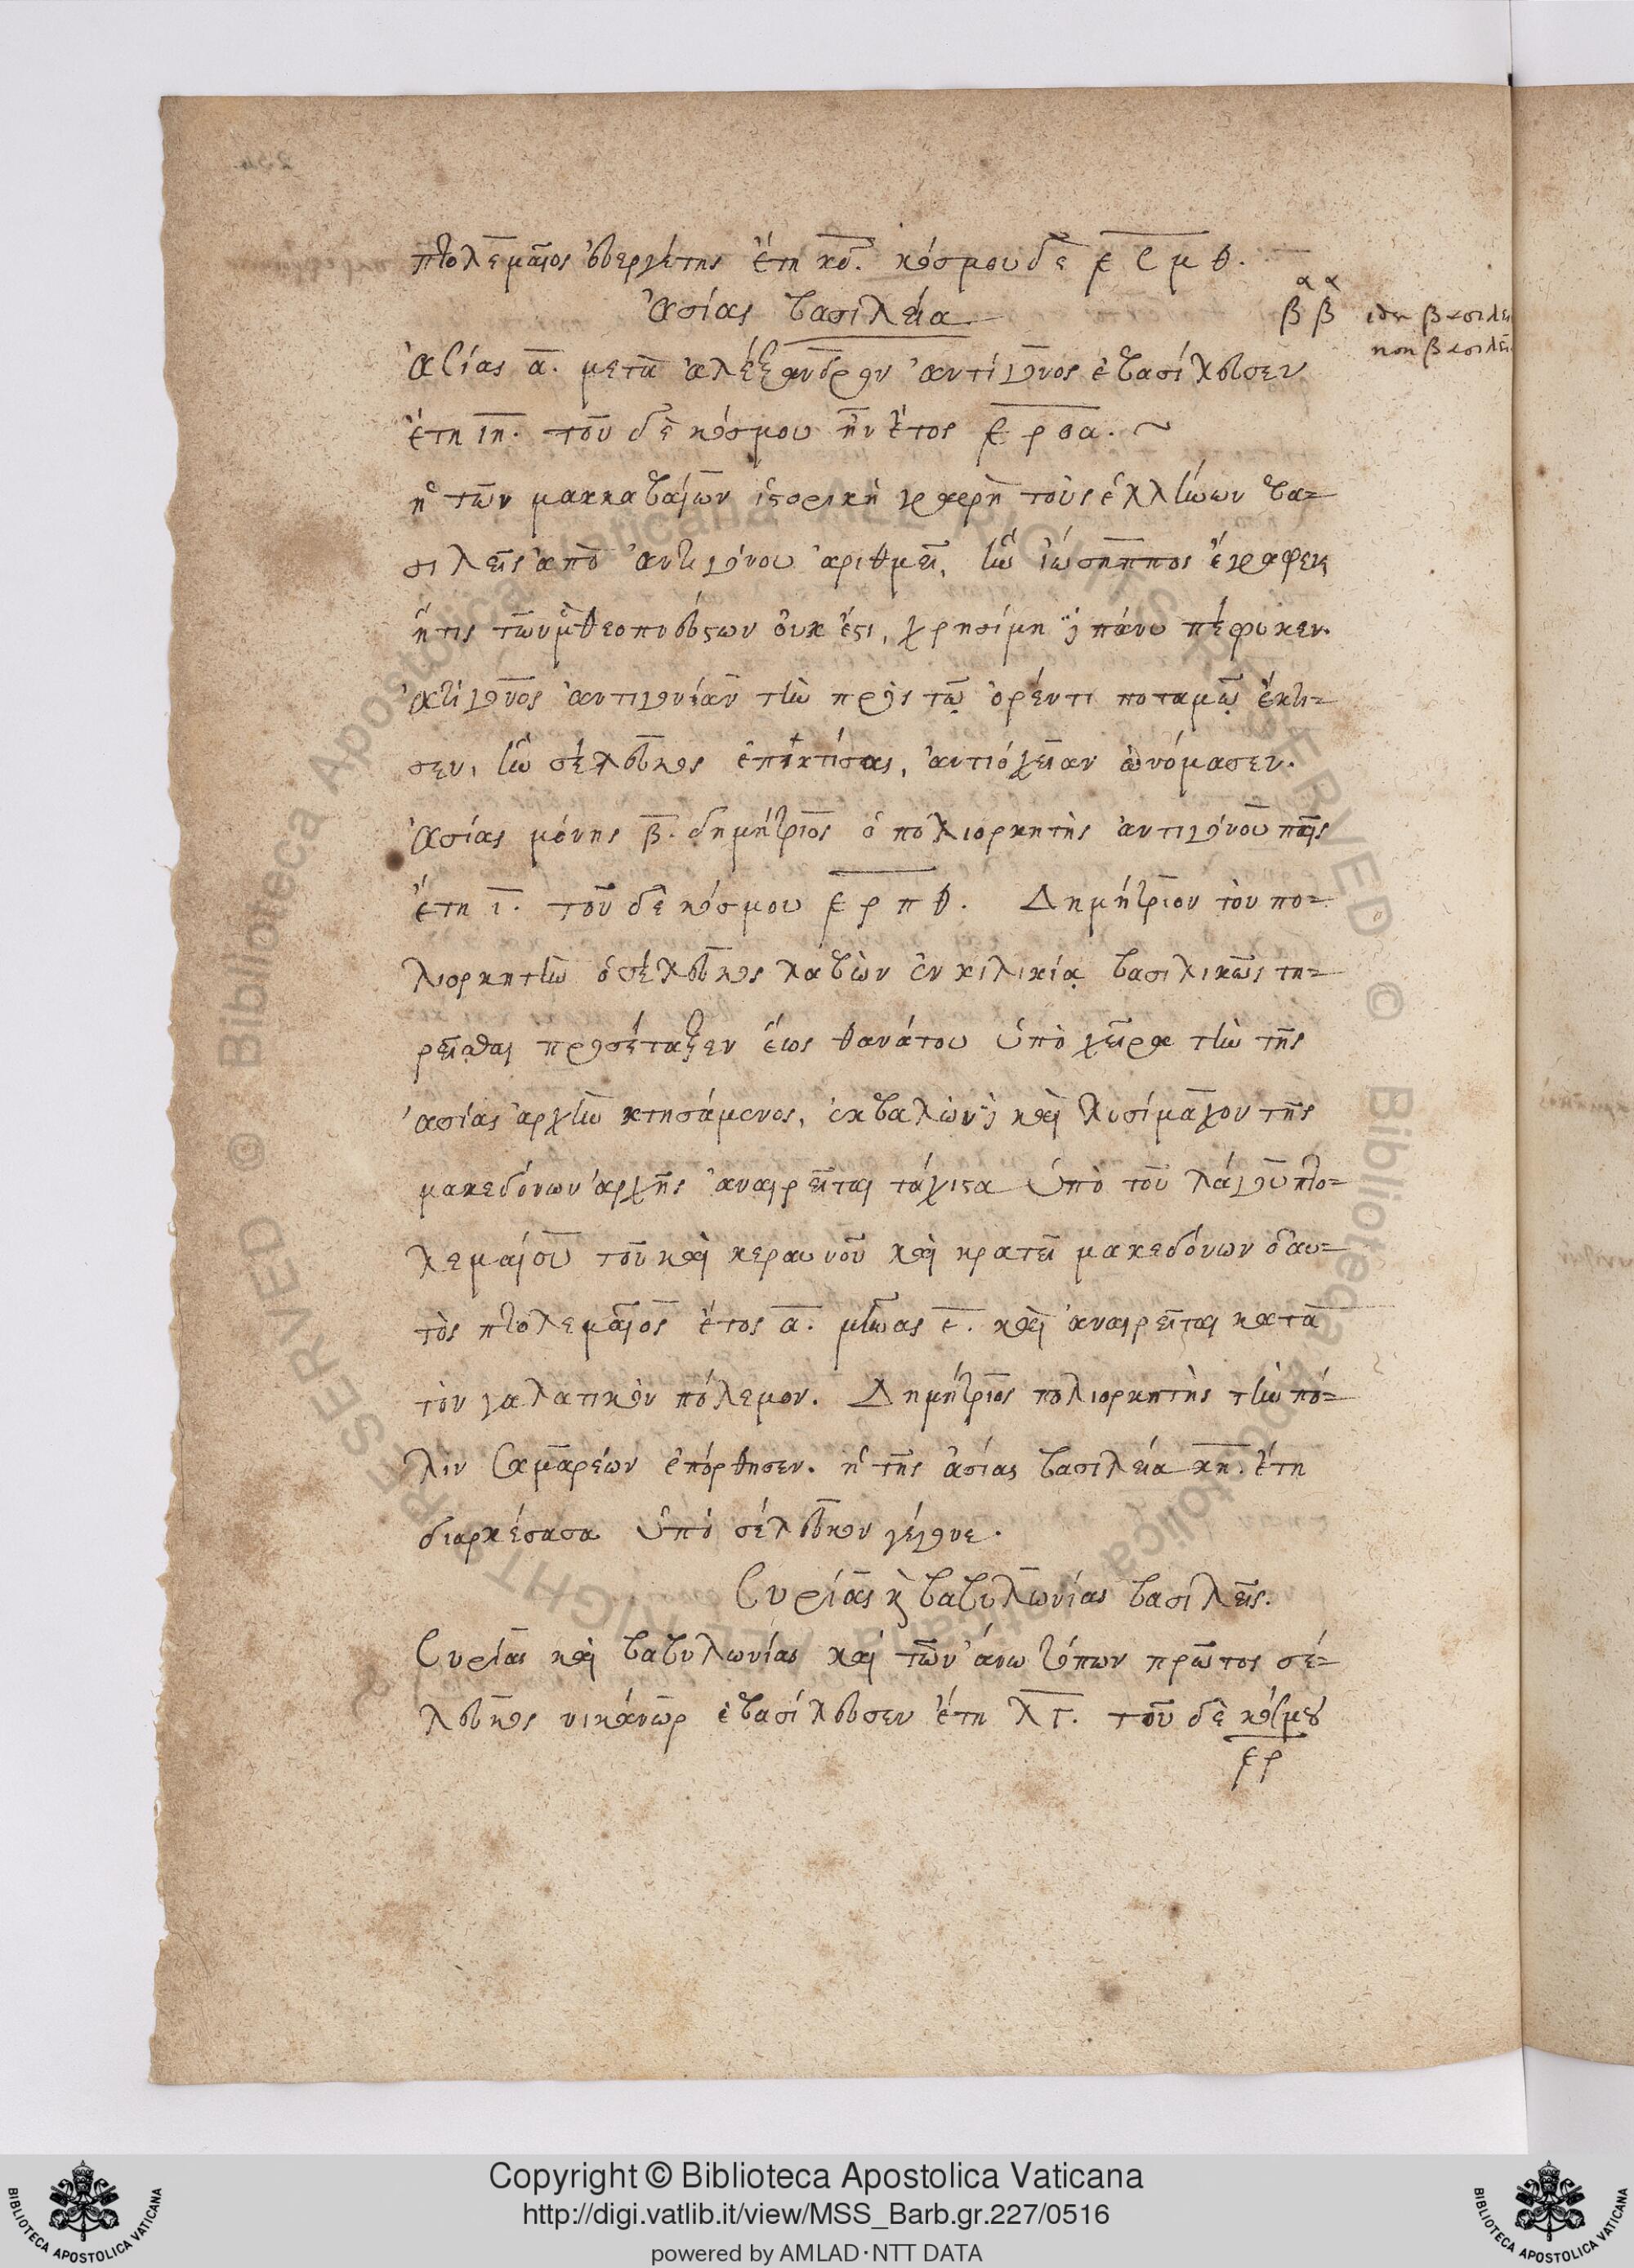 πτολεμαῖος ἐυεργέτης ἔτη κδ. κόσμου δὲ ε ς μ θ.
ἀσίας βασιλεία
α α
β β
ἀσίας α. μετὰ ἀλέξανδρον ἀντίγονος ἐβασίλευσεν
ἔτη ιη. τοῦ δὲ κόσμου ἦν ἔτος ε ρ ο α. ~
ἡ τῶν μακκαβαίων ἱστορικὴ γραφὴ τοὺς ἑλλήνων βα=
σιλεῖς ἀπὸ ἀντιγόνου ἀριθμεῖ, ἣν ἰώσηππος ἔγραφεν,
ἥτις τῶν μὲν θεοπνεύστων οὐκ ἔστι, χρησίμη δὲ πάνυ πέφυκεν.
ἀντίγονος ἀντιγονίαν τὴν πρὸς τῷ ὀρέντι ποταμῷ ἔκτι=
σεν, ἣν σέλευκος ἐπικτίσας, ἀντιόχειαν ὠνόμασεν.
ἀσίας μόνης β. δημήτριος ὁ πολιορκητὴς ἀντιγόνου παῖς
ἔτη ι. τοῦ δὲ κόσμου ε ρ π θ. Δημήτριον τὸν πο=
λιορκητὴν ὁ σέλευκος λαβὼν ἐν κιλικίᾳ βασιλικῶς τη=
ρεῖσθαι προσέταξεν ἕως θανάτου ὑπὸ χεῖρα τὴν τῆς
ἀσίας ἀρχὴν κτησάμενος, ἐκβαλὼν δὲ καὶ λυσίμαχον τῆς
μακεδόνων ἀρχῆς ἀναιρεῖται τάχιστα ὑπὸ τοῦ λάγου πτο=
λεμαίου τοῦ καὶ κεραυνοῦ καὶ κρατεῖ μακεδόνων ὁ αυ=
τὸς πτολεμαῖος ἔτος α. μῆνας ε. καὶ ἀναιρεῖται κατὰ
τὸν γαλατικὸν πόλεμον. Δημήτριος πολιορκητὴς τὴν πό=
λιν σαμαρέων ἐπόρθησεν. ἡ τῆς ἀσίας βασιλεία κη. ἔτη
διαρκέσασα ὑπὸ σέλευκον γέγονε.
Συρίας κ βαβυλωνίας βασιλεῖς.
Συρίας καὶ βαβυλωνίας καὶ τῶν ἄνω τόπων πρῶτος σέ=
λευκος νικάνωρ ἐβασίλευσεν ἔτη λγ. τοῦ δὲ κόσμου
ε ρ
Copyright © Biblioteca Apostolica Vaticana
http://digi.vatlib.it/view/MSS_Barb.gr.227/0516
powered by AMLAD·NTT DATA
BIBLIOTECA APOSTOLICA VATICANA
BIBLIOTECA APOSTOLICA VATICANA